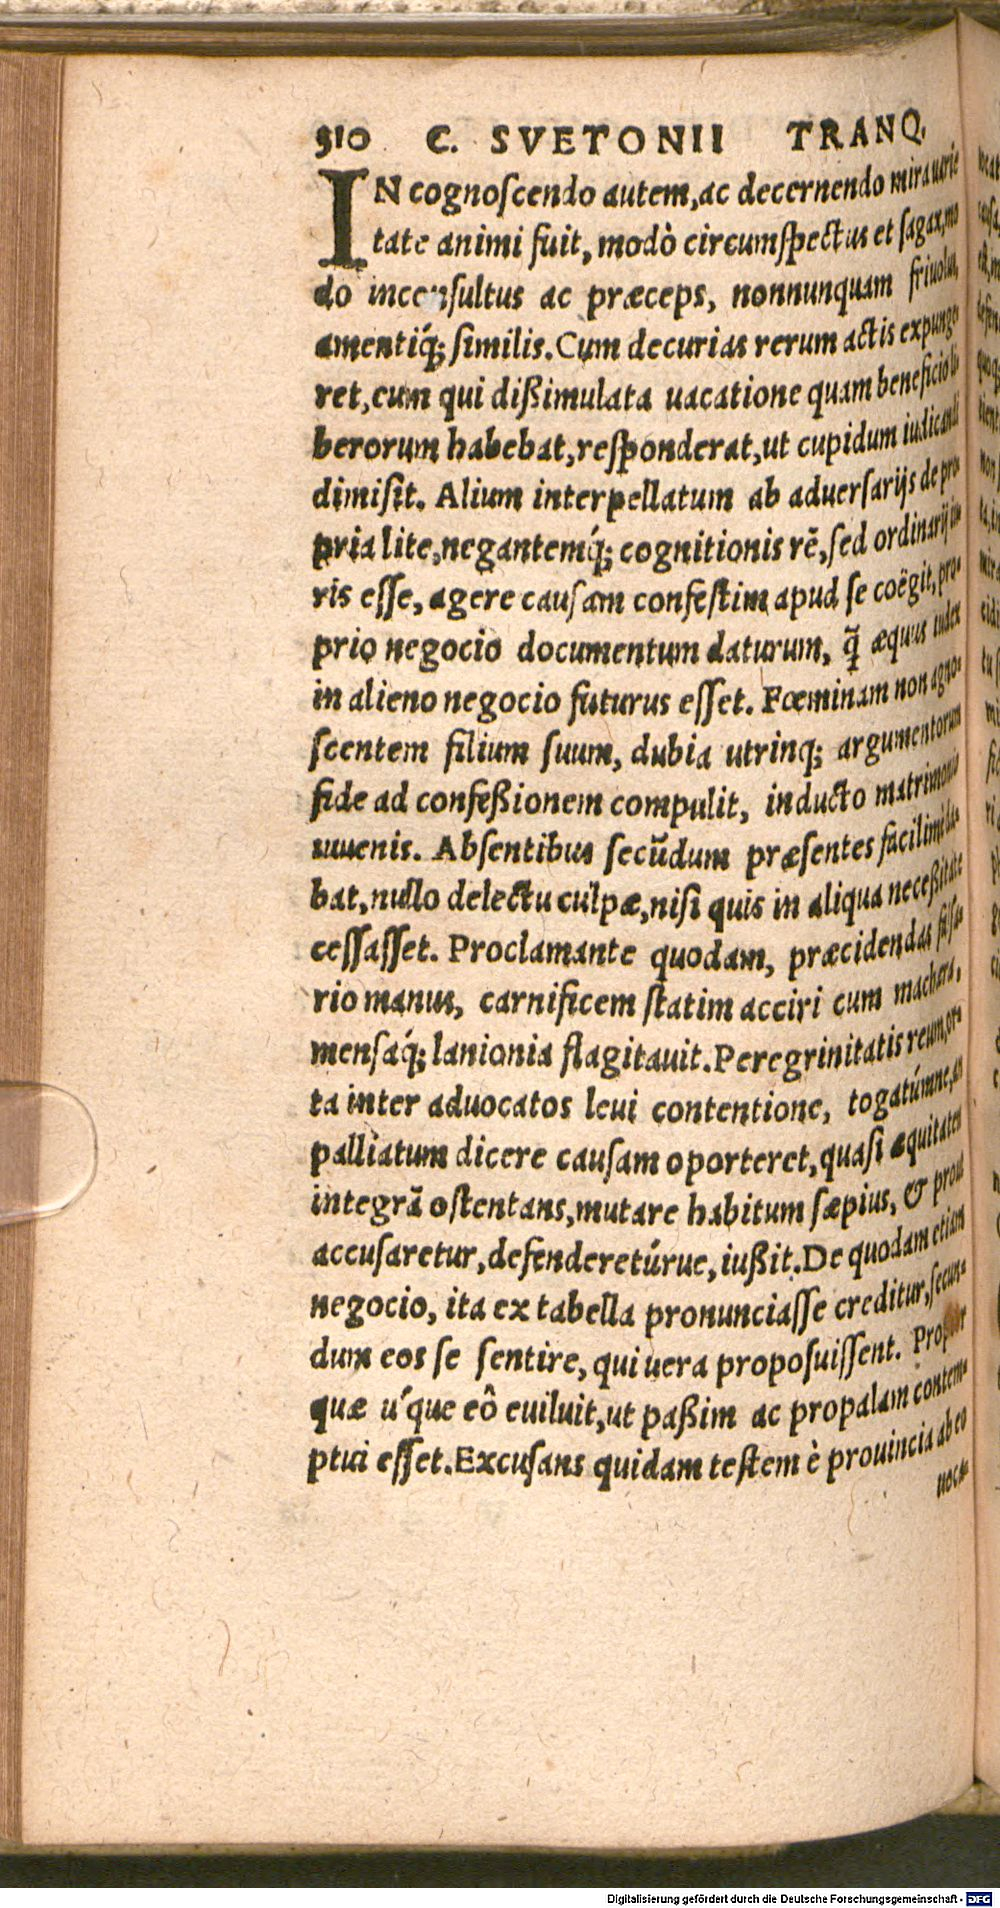 310 C. SVETONII TRANQ.
IN cognoſcendo autem, ac decernendo mira uarie
tate animi fuit, modò circumſpectus et ſagax, mo
do inconſultus ac præceps, nonnunquam friuolus,
amentiq́; ſimilis. Cum decurias rerum actis expunge
ret, eum qui dißimulata uacatione quam beneficio li
berorum habebat, reſponderat, ut cupidum iudicandi
dimiſit. Alium interpellatum ab aduerſarijs de pro
pria lite, negantemq́; cognitionis rẽ, ſed ordinarij iu
ris eſſe, agere cauſam confeſtim apud ſe coëgit, pro-
prio negocio documentum daturum, q̃ æquus iudex
in alieno negocio futurus eſſet. Fœminam non agno-
ſcentem filium ſuum, dubia utrinq; argumentorum
fide ad confeßionem compulit, inducto matrimonio
iuuenis. Abſentibus ſecũdum præſentes facilimè da-
bat, nullo delectu culpæ, niſi quis in aliqua neceßitate
ceſſaſſet. Proclamante quodam, præcidendas falſa-
rio manus, carnificem ſtatim acciri cum machæra,
menſaq́; lanionia flagitauit. Peregrinitatis reum, or-
ta inter aduocatos leui contentione, togatúmne, an
palliatum dicere cauſam oporteret, quaſi æquitatem
integrã oſtentans, mutare habitum ſæpius, & prout
accuſaretur, defenderetúrue, iußit. De quodam etiam
negocio, ita ex tabella pronunciaſſe creditur, ſecun-
dum eos ſe ſentire, qui uera propoſuiſſent. Propter
quæ uſque eô euiluit, ut paßim ac propalam contem-
ptui eſſet. Excuſans quidam teſtem è prouincia ab eo
uoca-
Digitalisierung gefördert durch die Deutsche Forschungsgemeinschaft - DFG